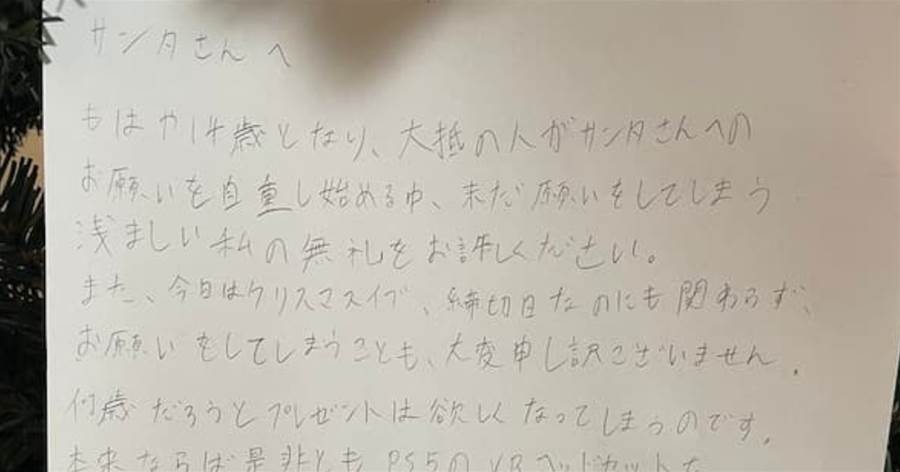 サンタさんへ
もはや14歳となり、大抵の人がサンタさんへの
お願いを自重し始める中、未だ願いをしてしまう
浅ましい私の無礼をお許しください。
また、今日はクリスマスイブ、締切日なのにも関わらず、
お願いをしてしまうことも、大変申し訳ございません。
何歳だろうとプレゼントは欲しくなってしまうのです。
本来ならば是非ともPS5のVRヘッドセットを